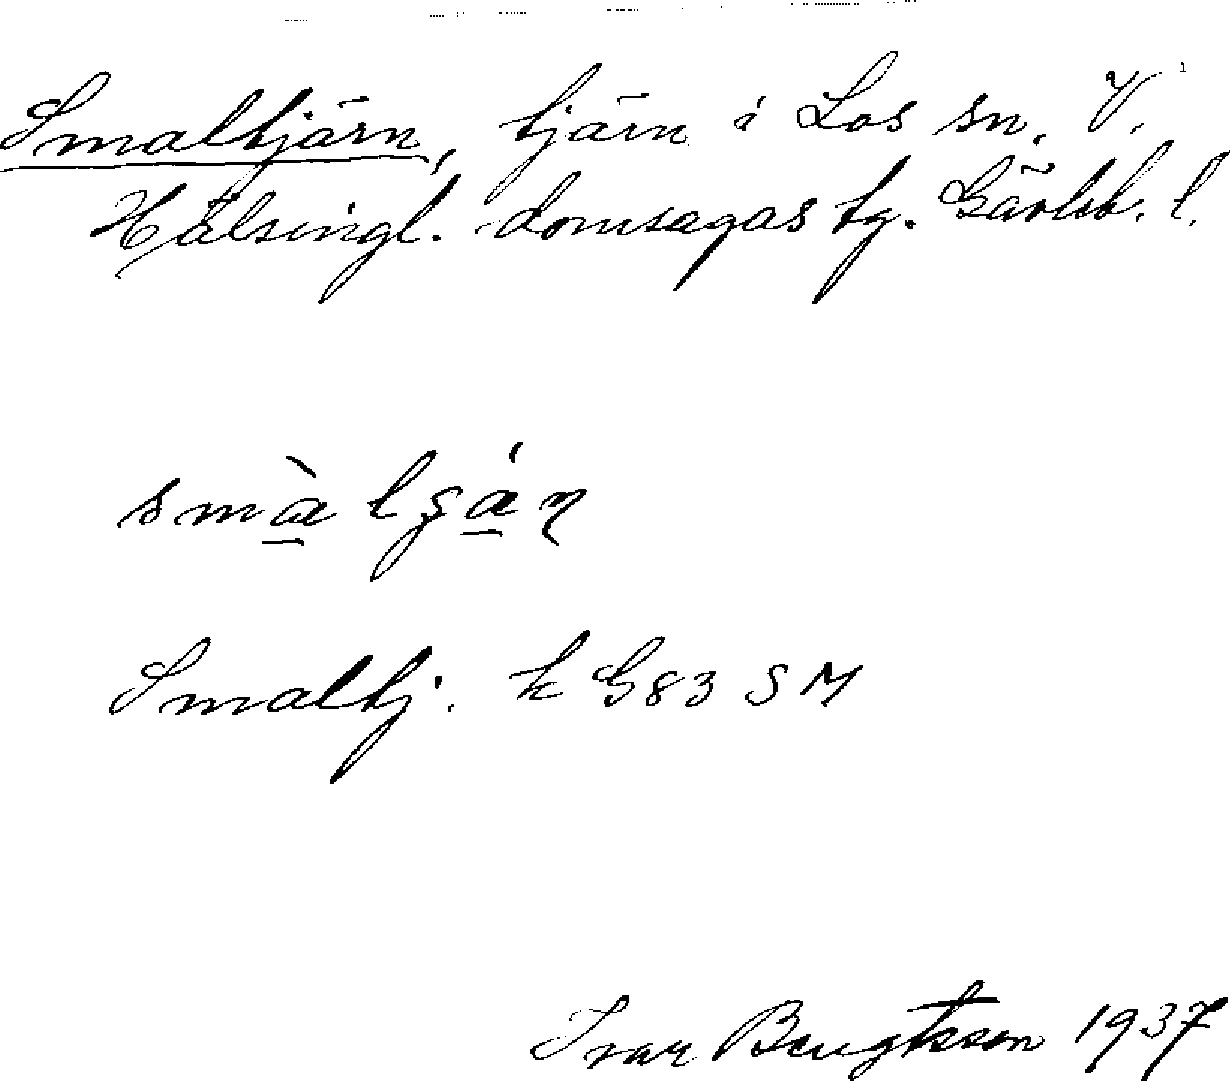 Smaltjärn, tjärn i Los sn. V.
Hälsingl. domsagas tg. Gävleb. l.
smàlʂáɳ
Smaltj. k G83 SM
Ivar Bengtsson 1937